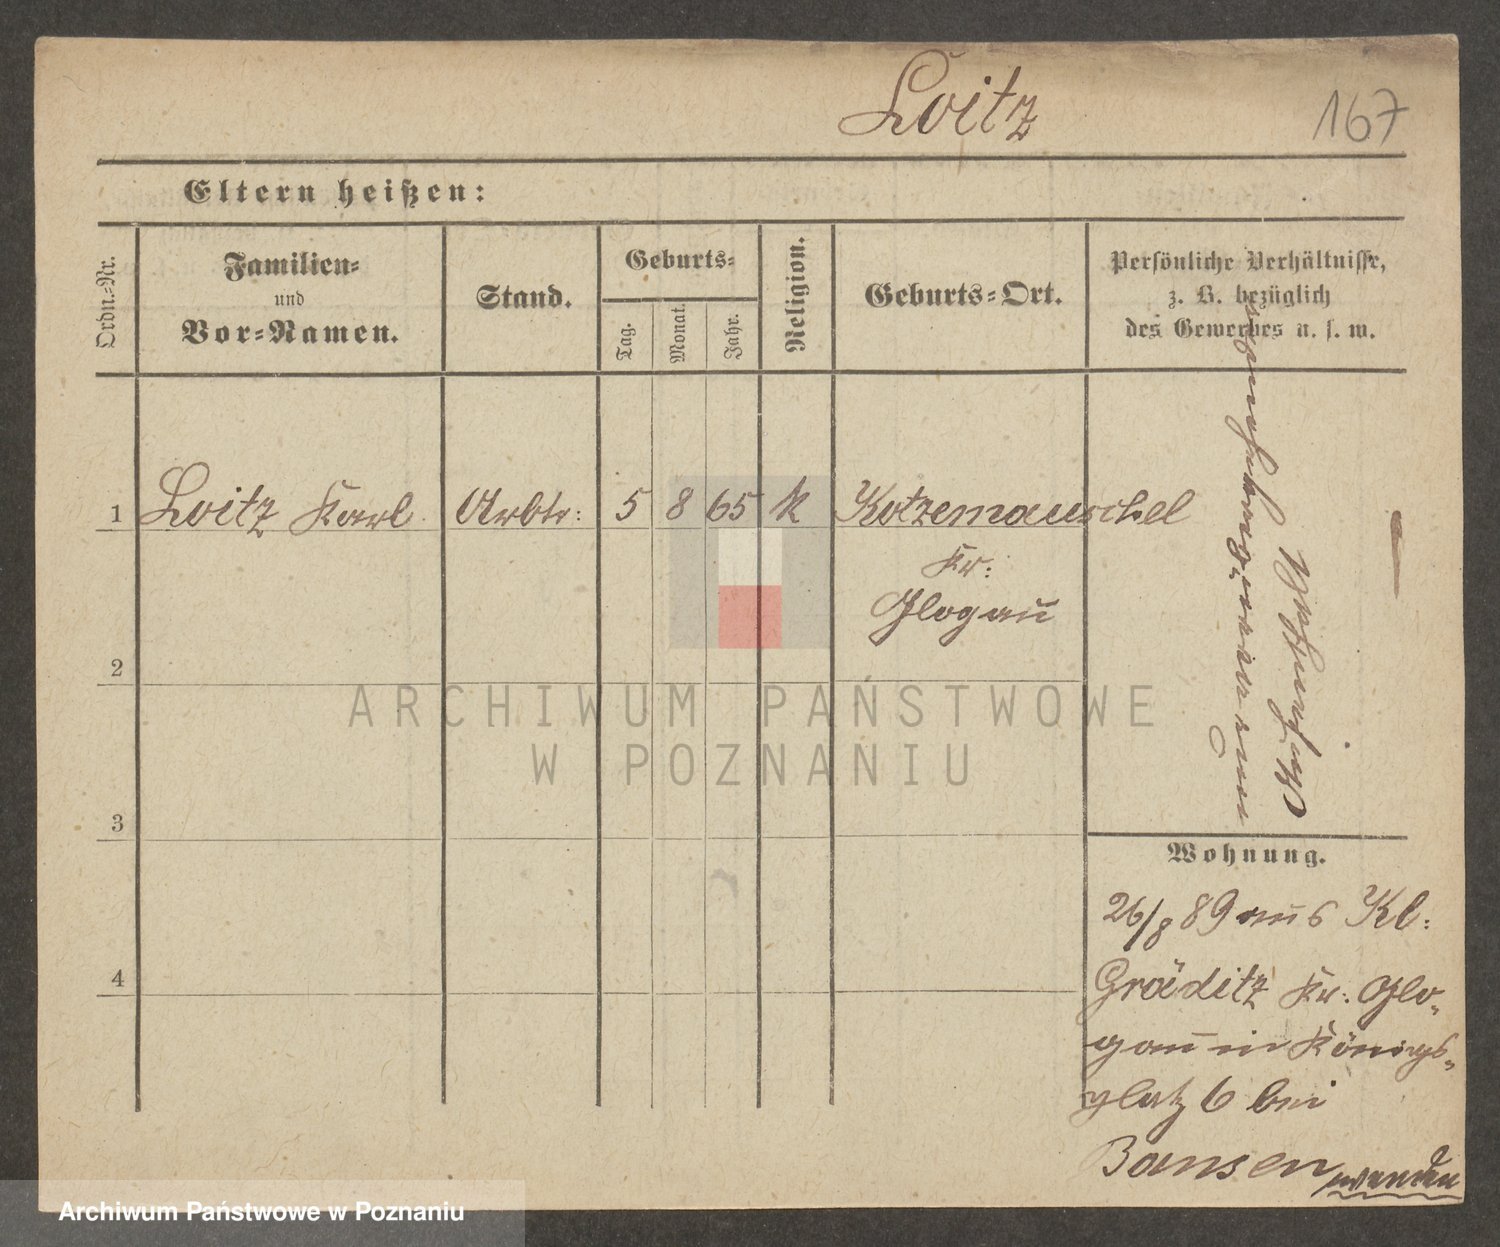 Loitz
167
Eltern heißen:
Ordn.-Nr.
Familien-
und
Vor-Namen.
Stand.
Geburts-
Tag.
Monat.
Jahr.
Religion.
Geburts-Ort.
Persönliche Verhältnisse,
z. B. bezüglich
des Gewerbes u. s. w.
1 Loitz Karl Arbtr: 5 8 65 k Kotzemauschel
Kr:
Glogau
2
3
4
Wohnung.
26/8 89 aus Kl:
Gräditz Kr: Glo-
gau in Königs-
platz 6 bei
Bansen
wenden
ARCHIWUM PAŃSTWOWE
W POZNANIU
Archiwum Państwowe w Poznaniu